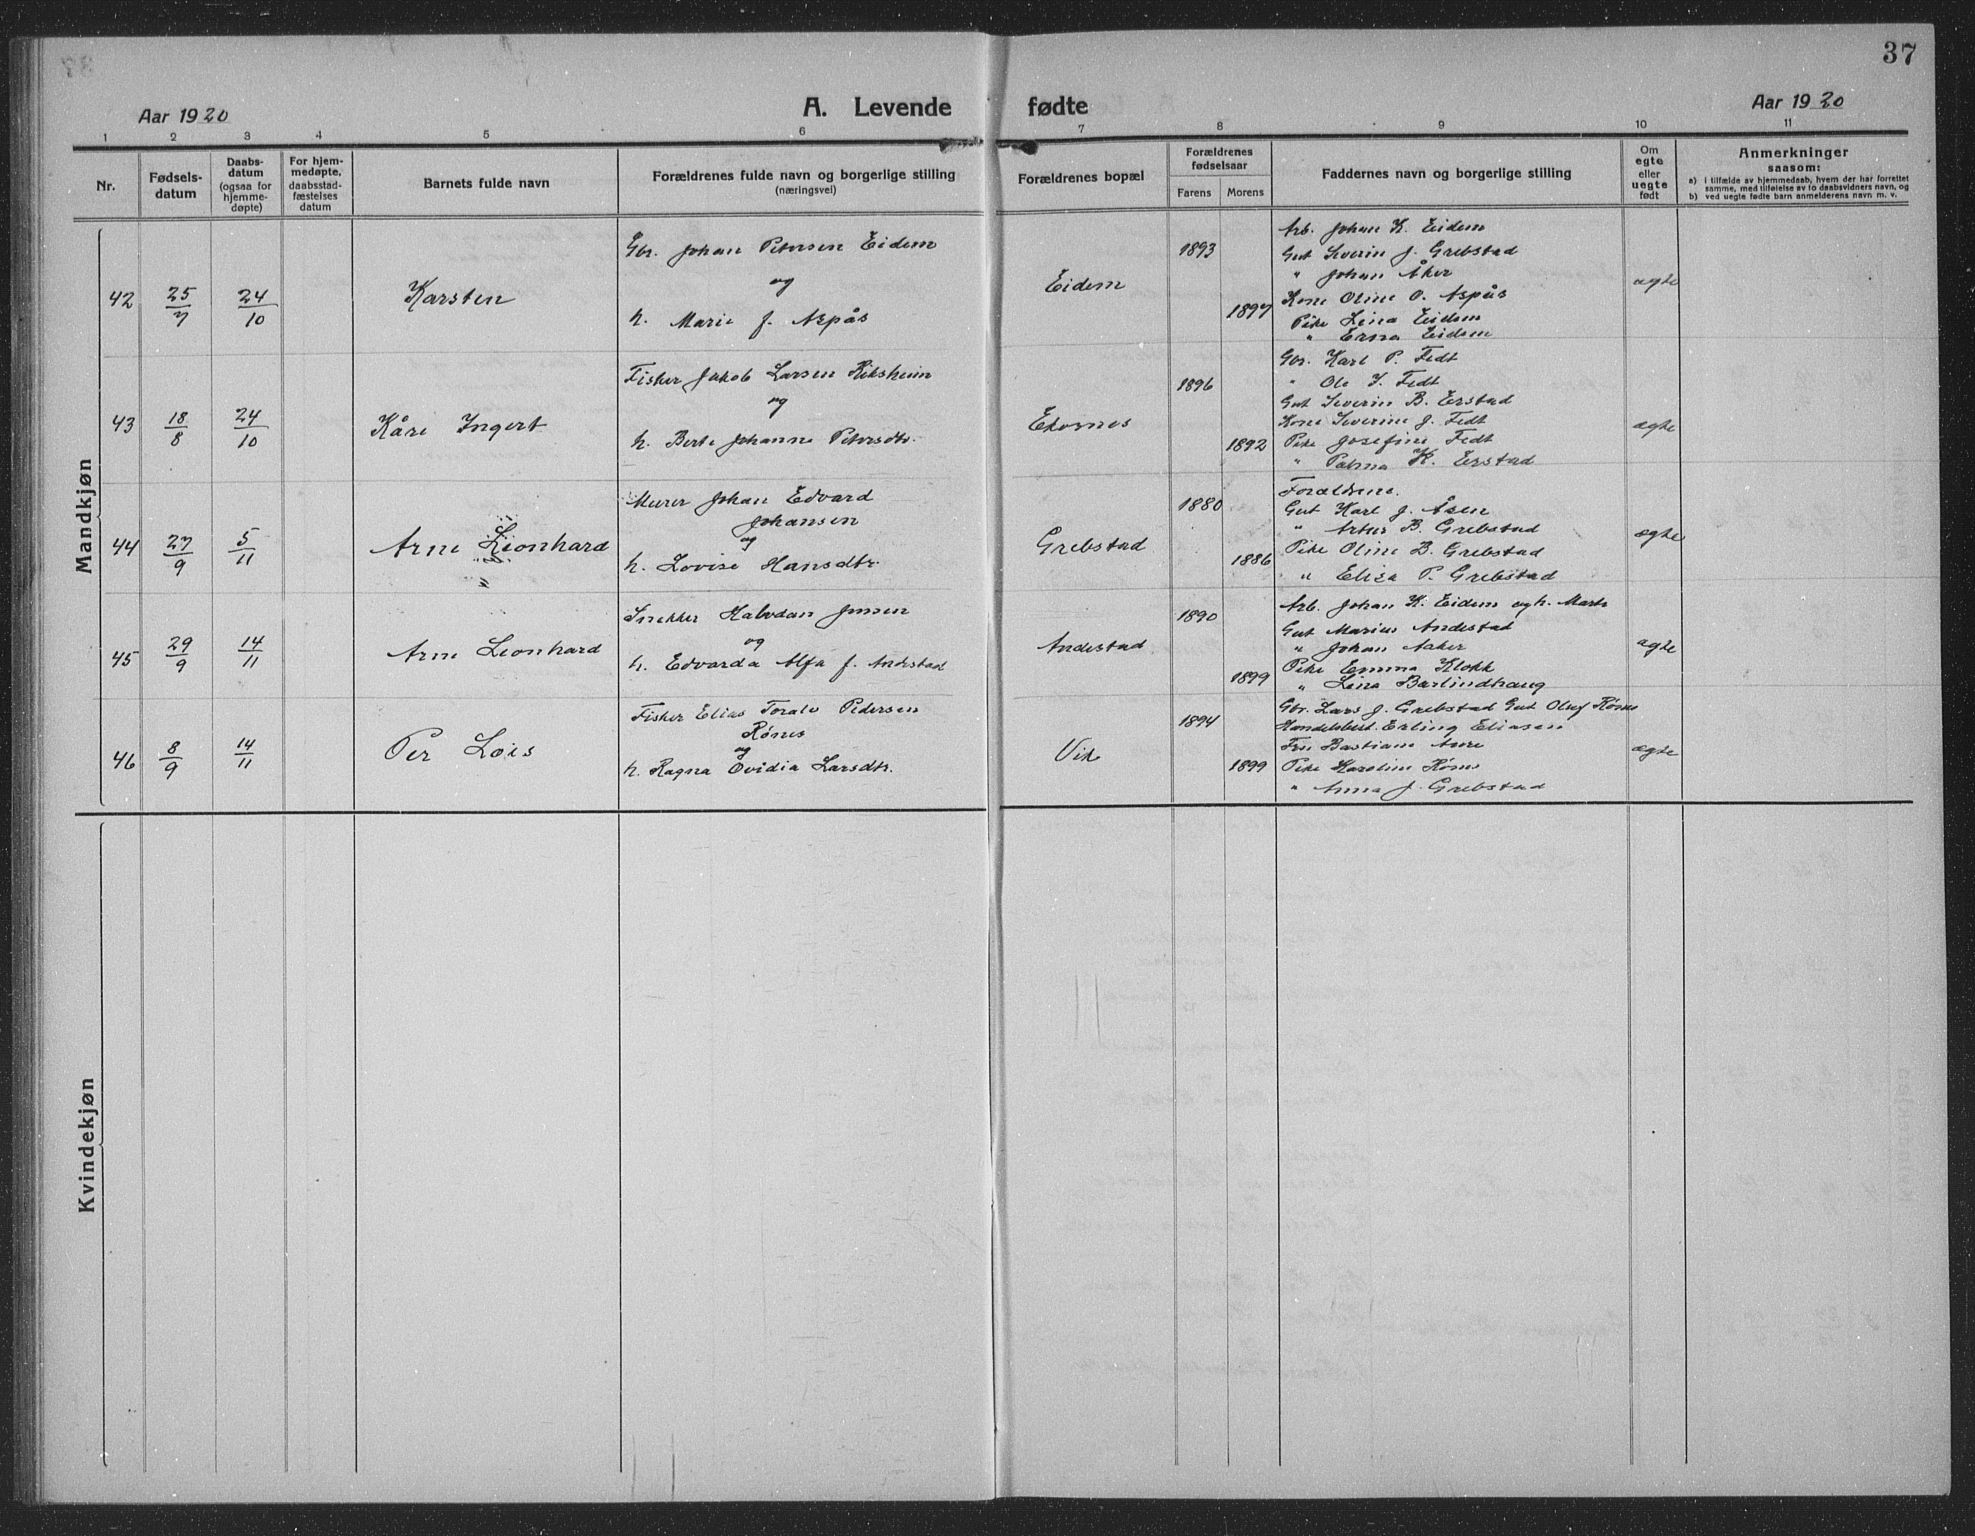 37
Aar 1920
A. Levende fødte
Aar 1920
1 2 3 4 5 6 7 8 9 10 11
Nr.
Fødsels-
datum
Daabs-
datum
(ogsaa for
hjemme-
døpte)
For hjem-
medøpte,
daabsstad-
fæstelses
datum
Barnets fulde navn
Forældrenes fulde navn og borgerlige stilling
(næringsvei)
Forældrenes bopæl
Forældrenes
fødselsaar
Farens Morens
Faddernes navn og borgerlige stilling
Om
egte
eller
uegte
født
Anmerkninger
saasom:
a) i tilfælde av hjemmedaab, hvem der har forrettet
samme, med tilføielse av to daabsvidners navn, og
b) ved uegte fødte barn anmelderens navn m. v.
Mandkjøn
42
25/7
24/10
Karsten
Gbr. Johan Petersen Eidem
og
h. Marie f. Aspås
Eidem
1893
1897
Arb. Johan K. Eidem
Gut Severin J. Grebstad
" Johan Åker
Kone Oline O. Aspås
Pike Lina Eidem
" Erna Eidem
ægte
43
18/8
24/10
Kåre Ingert
Fisker Jakob Larsen Riksheim
og
h. Berte Johanne Petersdtr.
Ekornes
1896
1892
Gbr. Karl P. Fedt
" Ole J. Fedt
Gut Severin B. Erstad
Kone Severine J. Fedt
Pike Josefine Fedt
" Palma K. Erstad
ægte
44
27/9
5/11
Arne Leonhard
Murer Johan Edvard
Johansen
og
h. Lovise Hansdtr.
Grebstad
1880
1886
Forældrene.
Gut Karl J. Åsen
" Artur B. Grebstad
Pike Oline B. Grebstad
" Elisa P. Grebstad
ægte
45
29/9
14/11
Arne Leonhard
Snekker Halvdan Jensen
og
h. Edvarda Alfa f. Andestad
Andestad
1890
1899
Arb. Johan K. Eidem og h. Marta
Gut Marius Andestad
" Johan Aaker
Pike Emma Klokk
" Lina Barlindhaug
ægte
46
8/9
14/11
Per Lois
Fisker Elias Toralv Pedersen
Rønes
og
h. Ragna Ovidia Larsdtr.
Vik
1894
1899
Gbr. Lars J. Grebstad Gut Oluf Rønes
Handelsbest. Erling Eliasen
Fru Bastiane Aure
Pike Karoline Rønes
" Anna J. Grebstad
ægte
Kvindekjøn